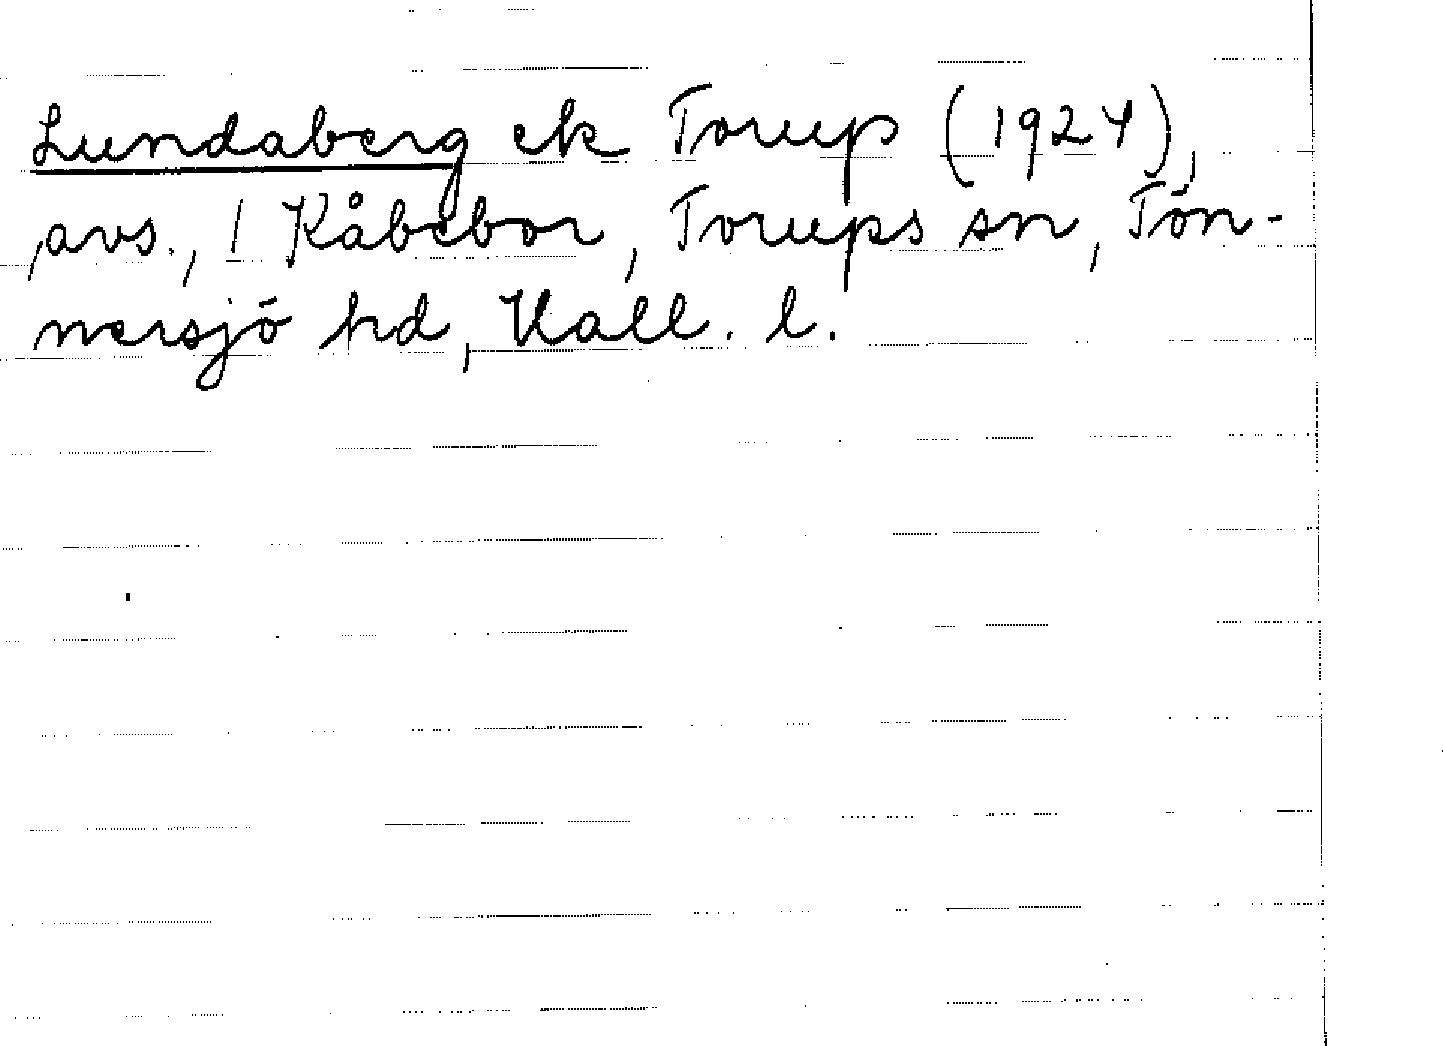 Lundaberg ek Torup (1924),
avs., 1 Kåbebor, Torups sn, Tön-
nersjö hd, Hall. l.